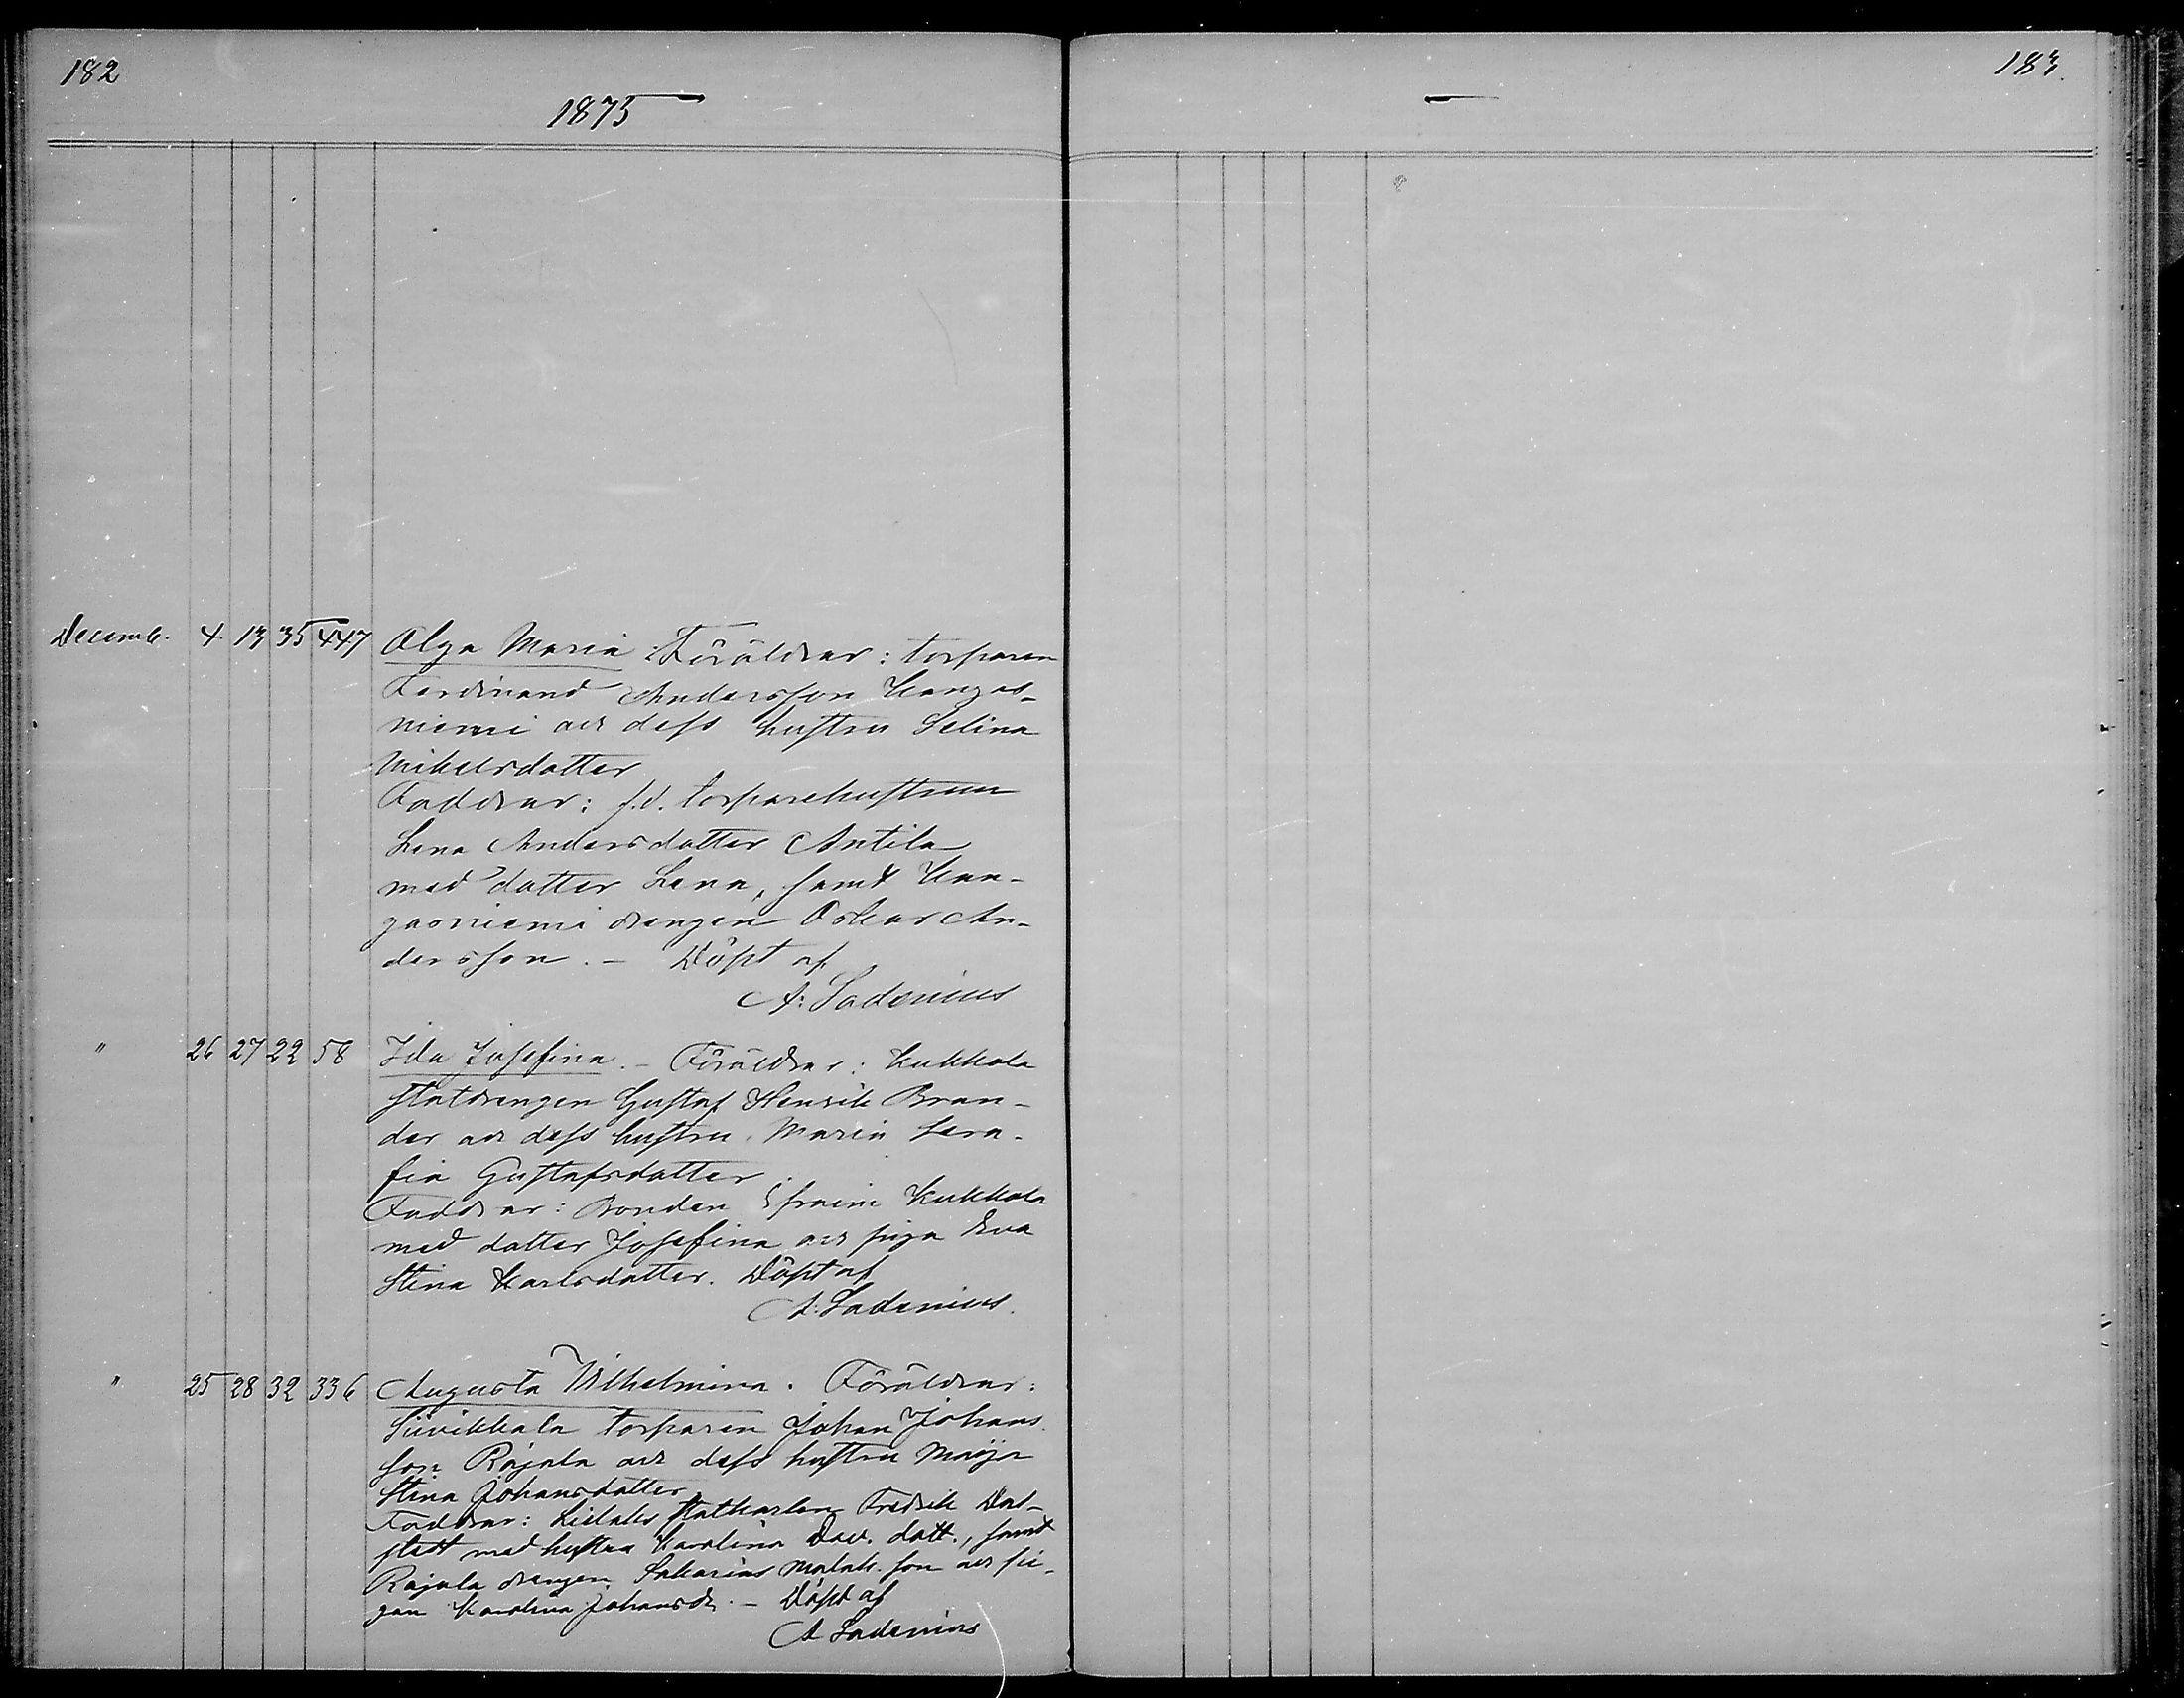 182
1875
183.
Decemb. 4 13 35 447 Olga Maria. Föräldrar: torparen
Ferdinand Andersson Kangas-
niemi och dess hustru Selina
Mikelsdotter
Faddrar: f.d. torparehustrun
Lena Andersdotter Antila
med dotter Lena, samt Kan-
gasniemi drengen Oskar An-
dersson. – Döpt af
A: Ladenius
" 26 27 22 58 Ida Josefina. – Föräldrar: Kukkola
statdrengen Gustaf Henrik Bran-
der och dess hustru Maria Sera-
fia Gustafsdotter
Faddrar: Bonden Efraim Kukkola
med dotter Josefina och piga Eva
Stina Karlsdotter. Döpt af
A: Ladenius.
" 25 28 32 336 Augusta Wilhelmina. Föräldrar:
Siivikkala torparen Johan Johans
son Rajala och dess hustru Maija
Stina Johansdotter
Faddrar: statkarlen Fredrik Dal-
stedt med hustru Karolina Dav. dott., samt
Rajala drengen Sakarias Malak. son och pi-
gan Karolina Johansdr. – Döpt af
A Ladenius